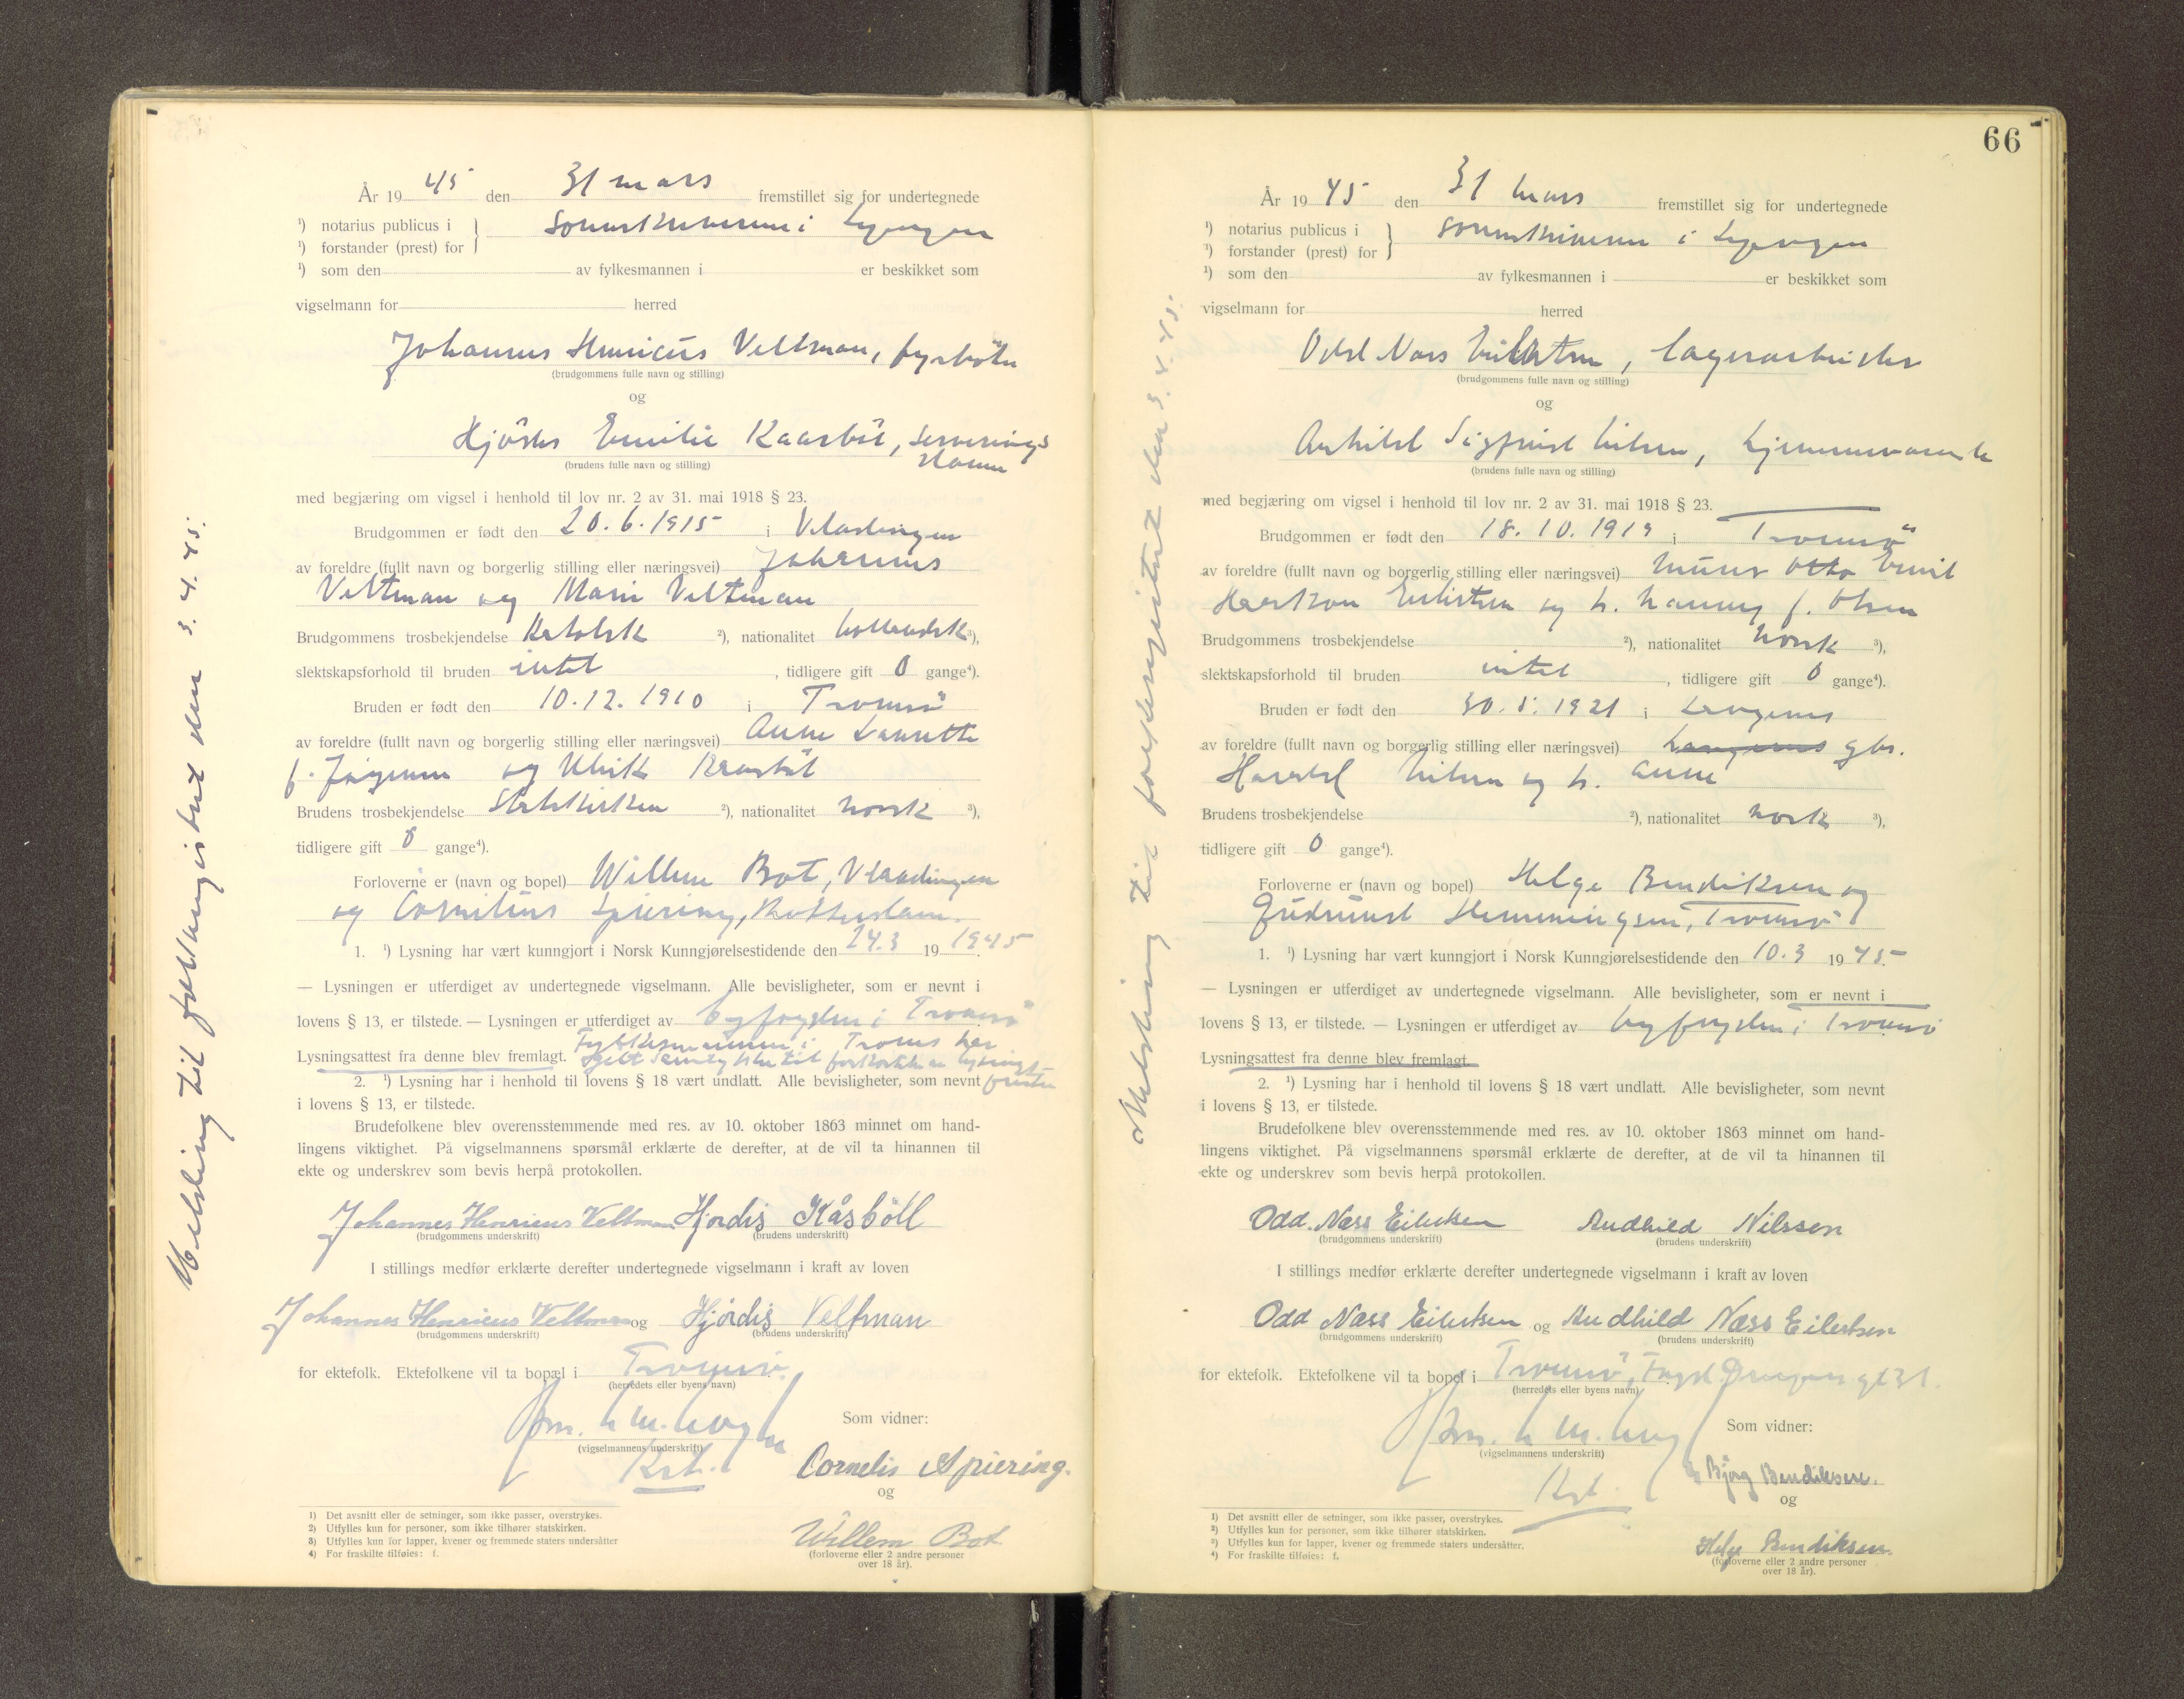 År 1945 den 31 mars fremstillet sig for undertegnede
¹) notarius publicus i
¹) forstander (prest) for
sorenskriveren i Lyngen
¹) som den av fylkesmannen i er beskikket som
vigselmann for herred
Johannes Henricus Veltman, fyrböter
(brudgommens fulle navn og stilling)
og
Hjördis Emilie Kaarböl, serverings
dame
(brudens fulle navn og stilling)
med begjæring om vigsel i henhold til lov nr. 2 av 31. mai 1918 § 23.
Brudgommen er født den 20.6.1915 i Vlardingen
av foreldre (fullt navn og borgerlig stilling eller næringsvei) Johannes
Veltman og Marie Veltman
Brudgommens trosbekjendelse Katolsk ²), nationalitet hollandsk ³),
slektskapsforhold til bruden intet, tidligere gift 0 gange⁴).
Bruden er født den 10.12.1910 i Tromsö
av foreldre (fullt navn og borgerlig stilling eller næringsvei) Anne Laurette
f. og Ulrik
Brudens trosbekjendelse Statskirken ²), nationalitet norsk ³),
tidligere gift 0 gange⁴).
Forloverne er (navn og bopel) Willem Bot, Vlaardingen
og Cornelius Spiering, Rotterdam.
1. ¹) Lysning har vært kunngjort i Norsk Kunngjørelsestidende den 24.3 19 1945
— Lysningen er utferdiget av undertegnede vigselmann. Alle bevisligheter, som er nevnt i
lovens § 13, er tilstede. — Lysningen er utferdiget av byfogden i Tromsö
Lysningsattest fra denne blev fremlagt. Fylkesmannen i Troms har
gitt samtykke til forkortelse av lysnings
fristen
2. ¹) Lysning har i henhold til lovens § 18 vært undlatt. Alle bevisligheter, som nevnt
i lovens § 13, er tilstede.
Brudefolkene blev overensstemmende med res. av 10. oktober 1863 minnet om hand-
lingens viktighet. På vigselmannens spørsmål erklærte de derefter, at de vil ta hinannen til
ekte og underskrev som bevis herpå protokollen.
Johannes Henricus Veltman Hjordis Kåsböll
(brudgommens underskrift) (brudens underskrift)
I stillings medfør erklærte derefter undertegnede vigselmann i kraft av loven
Johannes Henricus Veltman og Hjördis Veltman
(brudgommens underskrift) (brudens underskrift)
for ektefolk. Ektefolkene vil ta bopæl i Tromsö.
(herredets eller byens navn)
Som vidner:
(vigselmannens underskrift)
Cornelis Spiering.
og
Willem Bot
(forloverne eller 2 andre personer
over 18 år).
1) Det avsnitt eller de setninger, som ikke passer, overstrykes.
2) Utfylles kun for personer, som ikke tilhører statskirken.
3) Utfylles kun for lapper, kvener og fremmede staters undersåtter
4) For fraskilte tilføies: f.
Melding til folkeregistret den 3.4.45.
66
År 1945 den 31 mars fremstillet sig for undertegnede
¹) notarius publicus i
¹) forstander (prest) for
sorenskriveren i Lyngen
¹) som den av fylkesmannen i er beskikket som
vigselmann for herred
Odd Næss Eilertsen, lagerarbeider
(brudgommens fulle navn og stilling)
og
Audhild Sigfrid Nilsen, hjemmeværende
(brudens fulle navn og stilling)
med begjæring om vigsel i henhold til lov nr. 2 av 31. mai 1918 § 23.
Brudgommen er født den 18.10.1919 i Tromsö
av foreldre (fullt navn og borgerlig stilling eller næringsvei) murer Otto Emil
Haakon Eilertsen og h. Nanny f. Olsen
Brudgommens trosbekjendelse ²), nationalitet norsk ³),
slektskapsforhold til bruden intet, tidligere gift 0 gange⁴).
Bruden er født den 30.5.1921 i Langenes
av foreldre (fullt navn og borgerlig stilling eller næringsvei) Langenes gbr.
Harald Nilsen og h. Anne
Brudens trosbekjendelse ²), nationalitet norsk ³),
tidligere gift 0 gange⁴).
Forloverne er (navn og bopel) Helge Bendiksen og
Gudrund Hemmingsen, Tromsö
1. ¹) Lysning har vært kunngjort i Norsk Kunngjørelsestidende den 10.3 1945.
— Lysningen er utferdiget av undertegnede vigselmann. Alle bevisligheter, som er nevnt i
lovens § 13, er tilstede. — Lysningen er utferdiget av byfogden i Tromsö
Lysningsattest fra denne blev fremlagt.
2. ¹) Lysning har i henhold til lovens § 18 vært undlatt. Alle bevisligheter, som nevnt
i lovens § 13, er tilstede.
Brudefolkene blev overensstemmende med res. av 10. oktober 1863 minnet om hand-
lingens viktighet. På vigselmannens spørsmål erklærte de derefter, at de vil ta hinannen til
ekte og underskrev som bevis herpå protokollen.
Odd. Næss Eilertsen Audhild Nilssen
(brudgommens underskrift) (brudens underskrift)
I stillings medfør erklærte derefter undertegnede vigselmann i kraft av loven
Odd Næss Eilertsen og Audhild Næss Eilertsen
(brudgommens underskrift) (brudens underskrift)
for ektefolk. Ektefolkene vil ta bopel i Tromsö,
(herredets eller byens navn)
Som vidner:
(vigselmannens underskrift)
Bjørg Bendiksen.
og
Helge Bendiksen.
(forloverne eller 2 andre personer
over 18 år).
1) Det avsnitt eller de setninger, som ikke passer, overstrykes.
2) Utfylles kun for personer, som ikke tilhører statskirken.
3) Utfylles kun for lapper, kvener og fremmede staters undersåtter.
4) For fraskilte tilføies: f.
Melding til folkeregistret den 3.4.45.